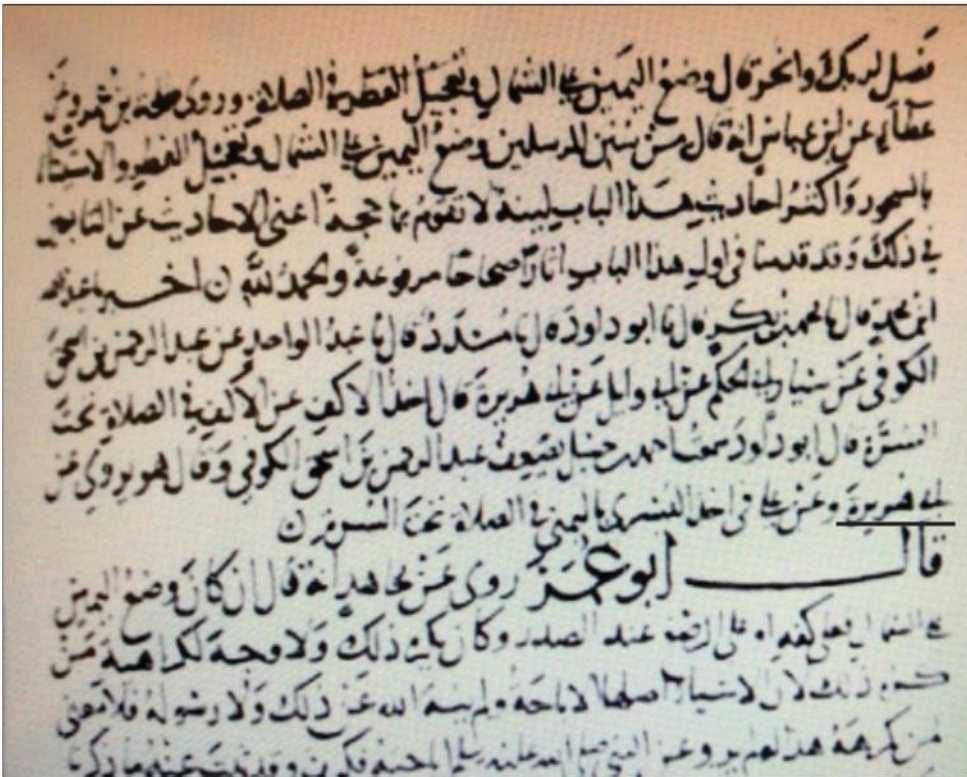 فصل لربك وانحر قال وضع اليمين على الشمال وتعجيل الفطر في الصلاة وروى طلحة بن عمرو عن
عطاء عن ابن عباس انه قال من سنن المرسلين وضع اليمين على الشمال وتعجيل الفطر والاستيناء
بالسحور واكثر احاديث هذا الباب لينة لا تقوم بها حجة اعني الاحاديث عن التابعين
في ذلك وقد قدمنا في اول هذا الباب اثارا صحاحا مرفوعة والحمد لله اخبرنا عبد الله
ابن محمد قال نا محمد بن بكر قال نا ابو داود قال نا مسدد قال نا عبد الواحد عن عبد الرحمن بن اسحق
الكوفي عن سيار ابي الحكم عن ابي وايل عن ابي هريرة قال اخذ الاكف عن الاكف في الصلاة تحت
السرة قال ابو داود سمعت احمد بن حنبل يضعف عبد الرحمن بن اسحق الكوفي وقال هو يروي عن
ابي هريرة وعن علي في اخذ اليسرى باليمنى في الصلاة تحت السرة
قال ابو عمر روي عن مجاهد انه قال ان كان وضع اليمين
على الشمال فعلى كفه او على الرصغ عند الصدر وكان يكره ذلك ولا وجه لكراهية من
كره ذلك لان الاشياء اصلها الاباحة ولم ينه الله عن ذلك ولا رسوله فلا معنى
من كره هذا لم يرو عن النبي صلى الله عليه